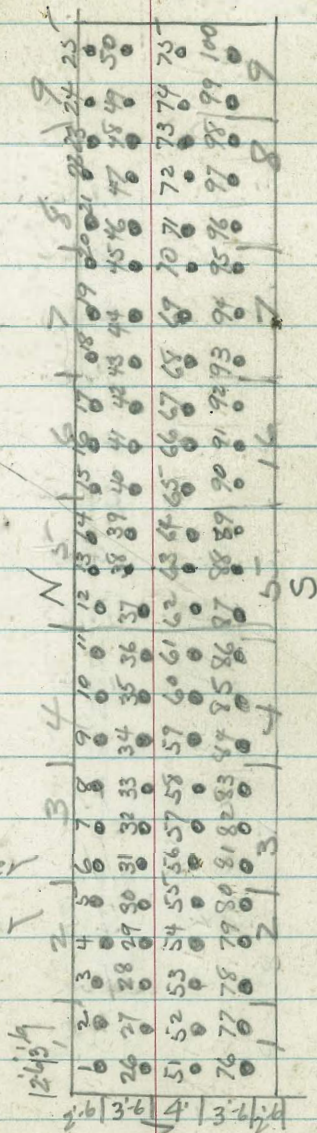 2 3 4 N 5 6 7 8 9
1 2 3 4 5 6 7 8 9 10 11 12 13 14 15 16 17 18 19 20 21 22 23 24 25
26 27 28 29 30 31 32 33 34 35 36 37 38 39 40 41 42 43 44 45 46 47 48 49 50
51 52 53 54 55 56 57 58 59 60 61 62 63 64 65 66 67 68 69 70 71 72 73 74 75
76 77 78 79 80 81 82 83 84 85 86 87 88 89 90 91 92 93 94 95 96 97 98 99 100
2 3 4 5 6 7 8 9
S
2'.6 3'.6 4' 3'.6 2'.6